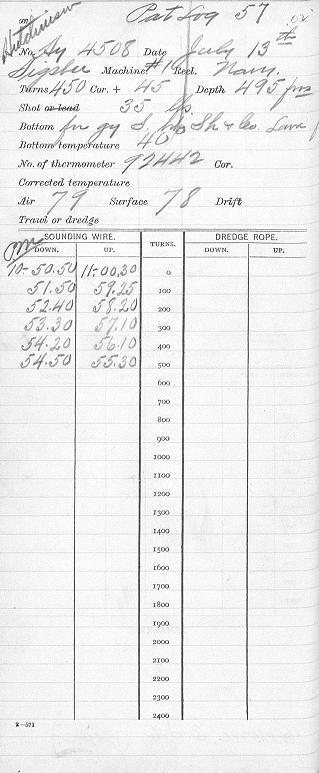 Hutchinson
Pat Log 57
No. Hy 4508 Date July 13th
Sigsbee Machine #1 Reel. Navy.
Turns 450 Cor. + 45 Depth 495 fms
Shot or lead 35 lb.
Bottom fne gy S. Sh & Co.
Bottom temperature 40
No. of thermometer 92442 Cor.
Corrected temperature
Air 79 Surface 78 Drift
Trawl or dredge
pm
SOUNDING WIRE. TURNS. DREDGE ROPE.
DOWN. UP. DOWN. UP.
10-50.50 11-00.30 0
51.50 59.25 100
52.40 58.20 200
53.30 57.10 300
54.20 56.10 400
54.50 55.30 500
600
700
800
900
1000
1100
1200
1300
1400
1500
1600
1700
1800
1900
2000
2100
2200
2300
2400
2—571